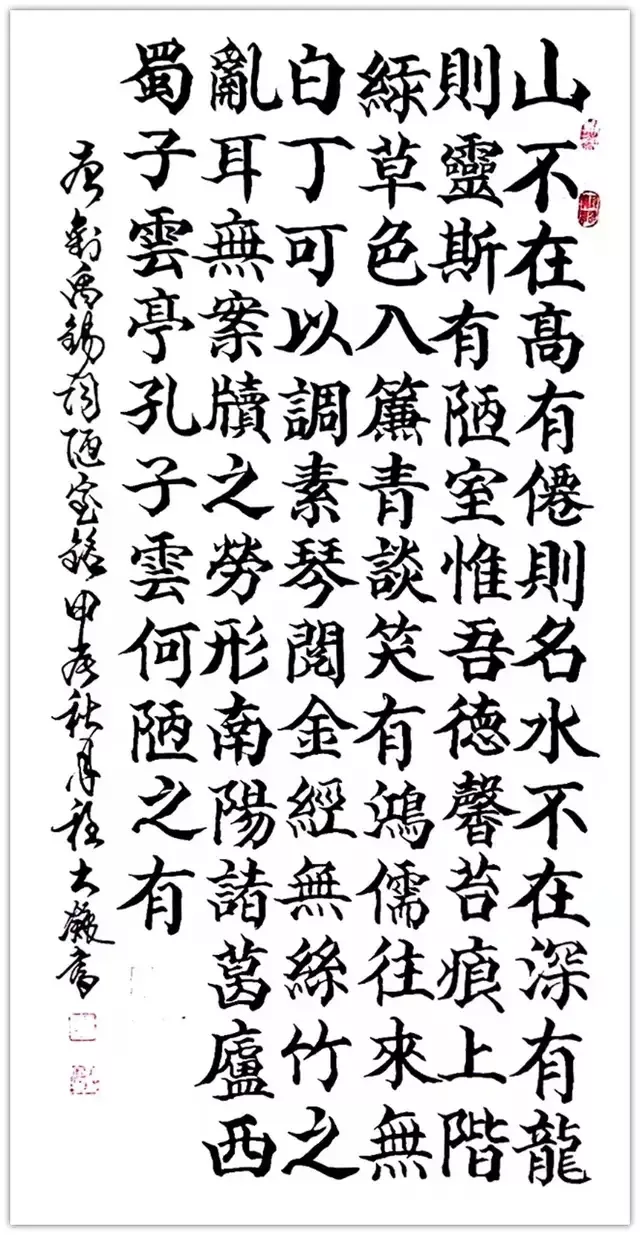 山不在高有僊則名水不在深有龍
則靈斯有陋室惟吾德馨苔痕上階
緑草色入簾青談笑有鴻儒往來無
白丁可以調素琴閱金經無絲竹之
亂耳無案牘之勞形南陽諸葛廬西
蜀子雲亭孔子雲何陋之有
唐劉禹錫詞陋室銘甲辰秋月程大書